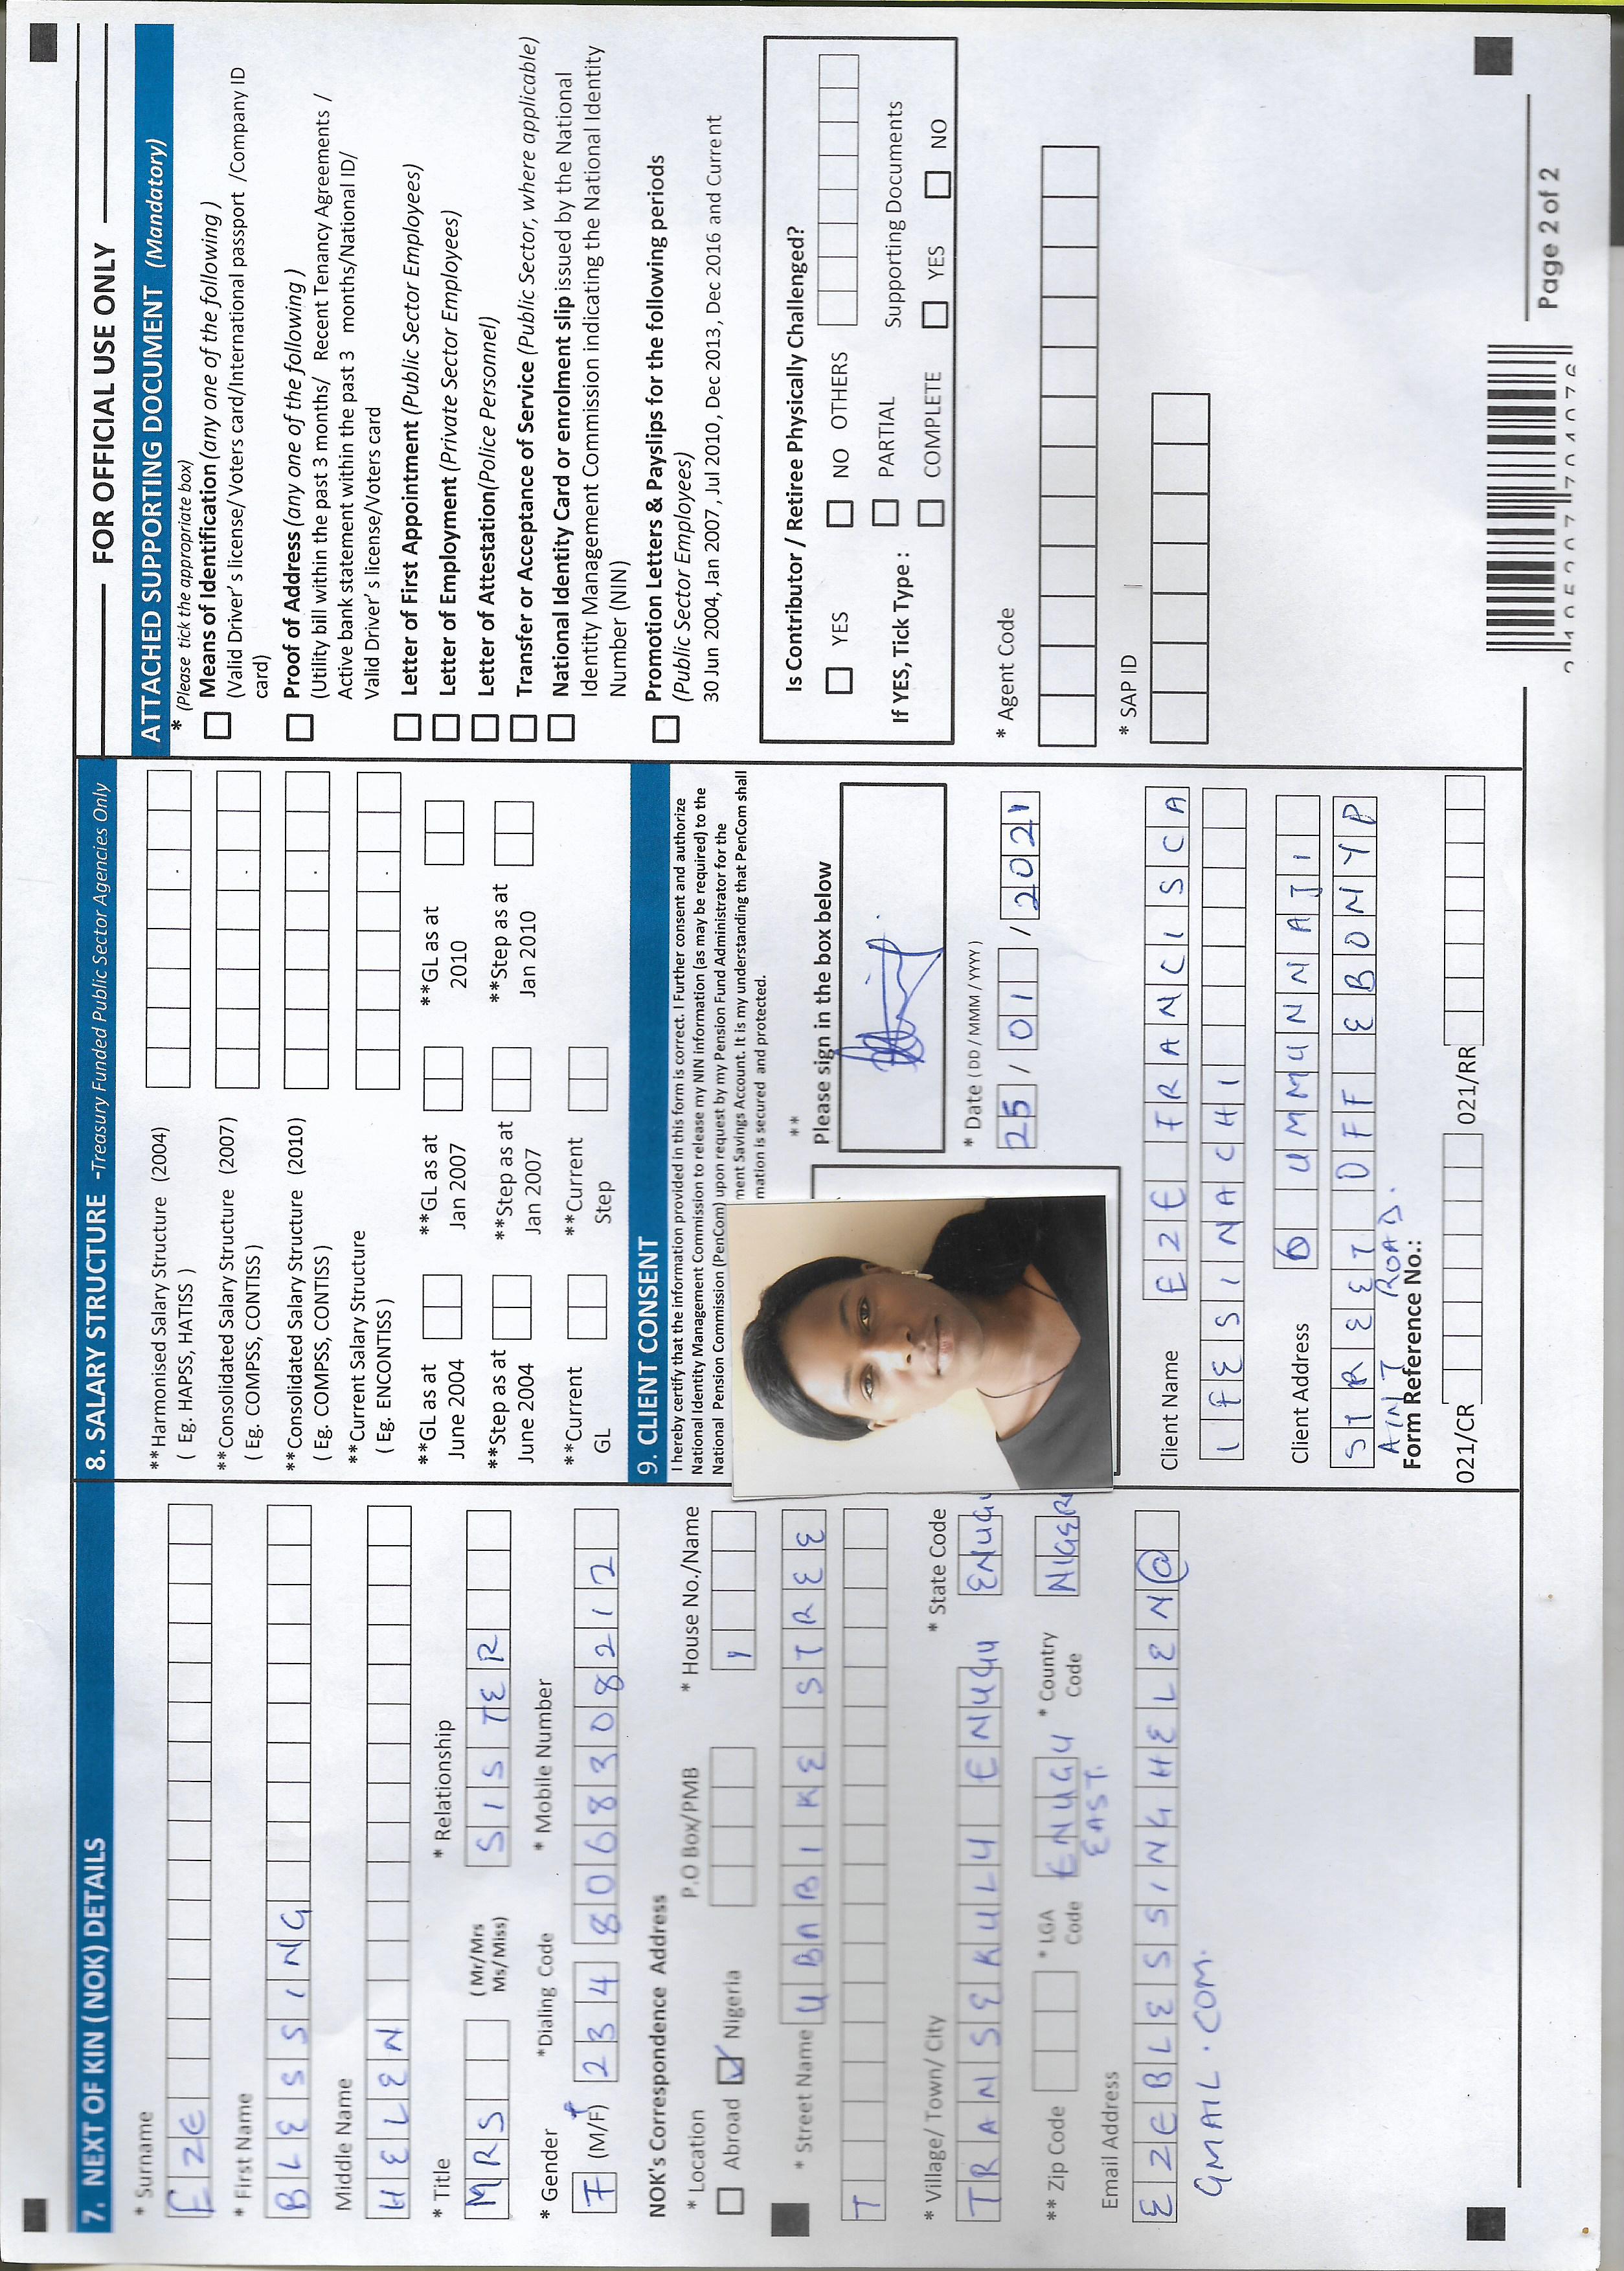 7. NEXT OF KIN (NOK) DETAILS
* Surname
EZE
* First Name
BLESSING
Middle Name
HELEN
* Title
MRS
(Mr/Mrs
Ms/Miss)
* Relationship
SISTER
* Gender
F (M/F)
*Dialing Code
234
* Mobile Number
8068308212
NOK's Correspondence Address
* Location
Abroad
Nigeria
P.O Box/PMB
* House No./Name
1
* Street Name
UBABIKE STREE
T
* Village/ Town/ City
TRANSEKULU ENUGU
* State Code
ENUGU
** Zip Code
* LGA
Code
ENUGU
EAST.
* Country
Code
NIGER
Email Address
EZEBLESSINGHELEN@
GMAIL.COM.
8. SALARY STRUCTURE -Treasury Funded Public Sector Agencies Only
**Harmonised Salary Structure (2004)
( Eg. HAPSS, HATISS )
**Consolidated Salary Structure (2007)
( Eg. COMPSS, CONTISS )
**Consolidated Salary Structure (2010)
( Eg. COMPSS, CONTISS )
**Current Salary Structure
( Eg. ENCONTISS )
**GL as at
June 2004
**GL as at
Jan 2007
**GL as at
2010
**Step as at
June 2004
**Step as at
Jan 2007
**Step as at
Jan 2010
**Current
GL
**Current
Step
9. CLIENT CONSENT
I hereby certify that the information provided in this form is correct. I Further consent and authorize
National Identity Management Commission to release my NIN information (as may be required) to the
National Pension Commission (PenCom) upon request by my Pension Fund Administrator for the
ment Savings Account. It is my understanding that PenCom shall
mation is secured and protected.
**
Please sign in the box below
* Date (DD / MMM / YYYY)
25 / 01 / 2021
Client Name
EZE FRANCISCA
IFESINACHI
Client Address
6 UMMUNNAJI
STREET OFF EBONYP
AINT ROAD.
Form Reference No.:
021/CR
021/RR
FOR OFFICIAL USE ONLY
ATTACHED SUPPORTING DOCUMENT (Mandatory)
* (Please tick the appropriate box)
Means of Identification (any one of the following )
(Valid Driver's license/Voters card/International passport /Company ID
card)
Proof of Address (any one of the following )
(Utility bill within the past 3 months/ Recent Tenancy Agreements /
Active bank statement within the past 3 months/National ID/
Valid Driver's license/Voters card
Letter of First Appointment (Public Sector Employees)
Letter of Employment (Private Sector Employees)
Letter of Attestation(Police Personnel)
Transfer or Acceptance of Service (Public Sector, where applicable)
National Identity Card or enrolment slip issued by the National
Identity Management Commission indicating the National Identity
Number (NIN)
Promotion Letters & Payslips for the following periods
(Public Sector Employees)
30 Jun 2004, Jan 2007 , Jul 2010 , Dec 2013 , Dec 2016 and Current
Is Contributor / Retiree Physically Challenged?
YES
NO OTHERS
If YES, Tick Type :
PARTIAL
Supporting Documents
COMPLETE
YES
NO
* Agent Code
* SAP ID
Page 2 of 2